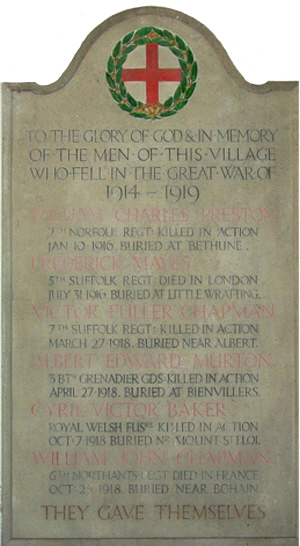 TO THE GLORY OF GOD & IN MEMORY
OF THE MEN · OF · THIS · VILLAGE
WHO · FELL IN THE GREAT · WAR OF
1914 - 1919
WILLIAM CHARLES PRESTON
7TH NORFOLK REGT: KILLED IN ACTION
JAN 10 · 1916. BURIED AT BETHUNE.
FREDERICK MAYES.
5TH SUFFOLK REGT. DIED IN LONDON
JULY 31 · 1916. BURIED AT LITTLE WRATTING.
VICTOR FULLER CHAPMAN.
7TH SUFFOLK REGT: KILLED IN ACTION
MARCH 27 · 1918. BURIED NEAR ALBERT.
ALBERT EDWARD MURTON.
3 BTN GRENADIER GDS · KILLED IN ACTION
APRIL 27 · 1918. BURIED AT BIENVILLERS.
CYRIL VICTOR BAKER.
ROYAL WELSH FUSRS KILLED IN ACTION
OCT · 7 1918 BURIED NR MOUNT ST ELOI.
WILLIAM JOHN CHAPMAN.
6TH NORTHANTS REGT DIED IN FRANCE
OCT · 1918. BURIED NEAR BOHAIN.
THEY GAVE THEMSELVES